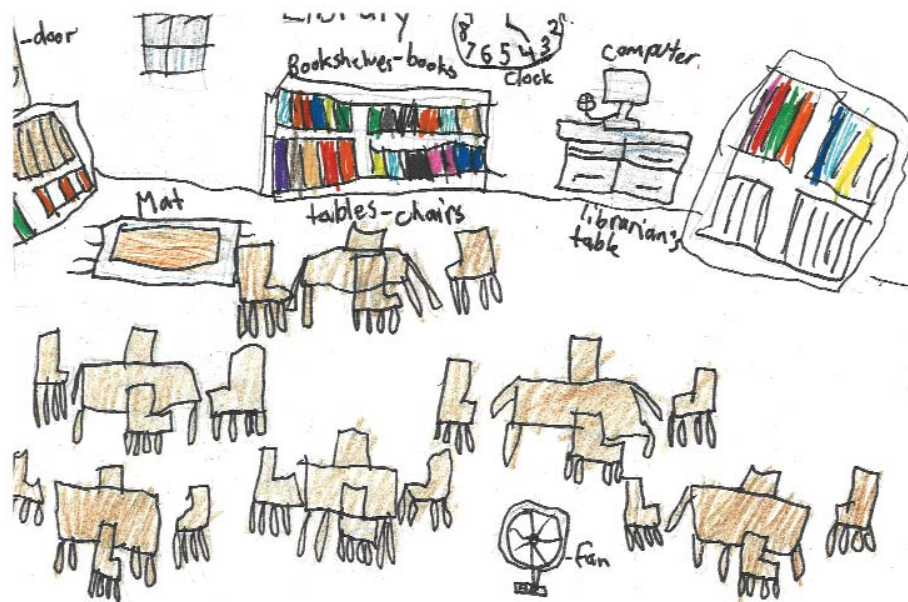 Library
-door
8 7 6 5 4 3 2
Clock
Bookshelves-books
computer
Mat
tables-chairs
librarian's
table
-fan